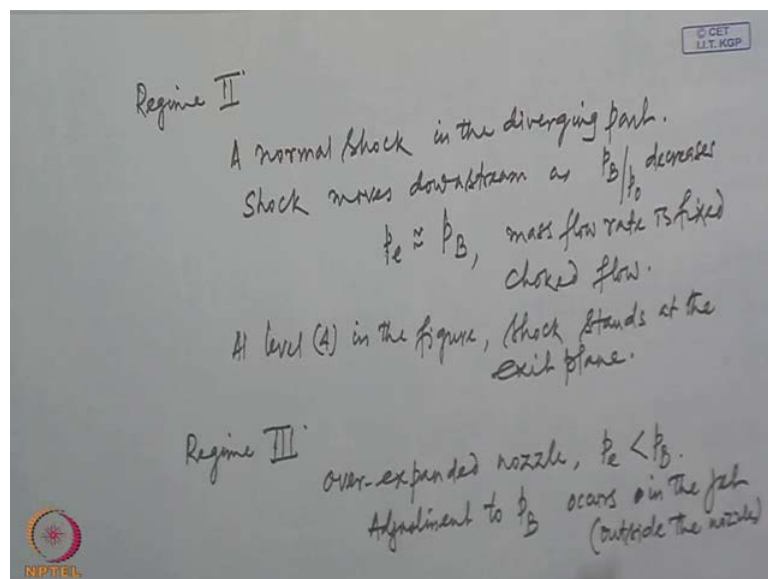 © CET
I.I.T. KGP
Regime II
A normal shock in the diverging part.
Shock moves downstream as p_B/p_0 decreases
p_e ≈ p_B, mass flow rate is fixed
choked flow.
At level (4) in the figure, shock stands at the
exit plane.
Regime III
over-expanded nozzle, p_e < p_B.
Adjustment to p_B occurs in the jet
(outside the nozzle)
NPTEL